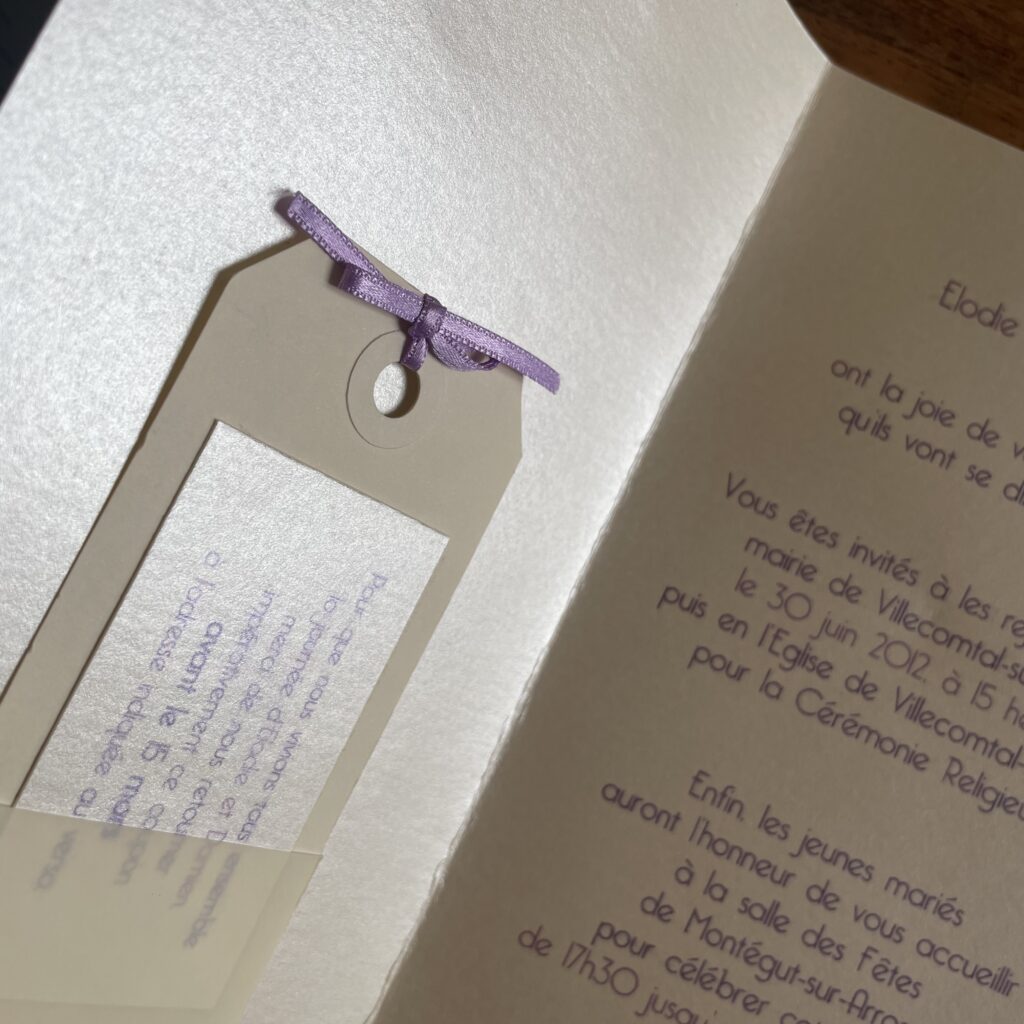 Pour que nous vivions tous ensemble
la journée d'Elodie et Damien
merci de nous retourner
impérativement ce coupon
avant le 15 mars
à l'adresse indiquée au verso.
Elodie
ont la joie de v
qu'ils vont se di
Vous êtes invités à les re
mairie de Villecomtal-su
le 30 juin 2012, à 15 h
puis en l'Eglise de Villecomtal-
pour la Cérémonie Religieu
Enfin, les jeunes mariés
auront l'honneur de vous accueillir
à la salle des Fêtes
de Montégut-sur-Arro
pour célébrer
de 17h30 jusqu